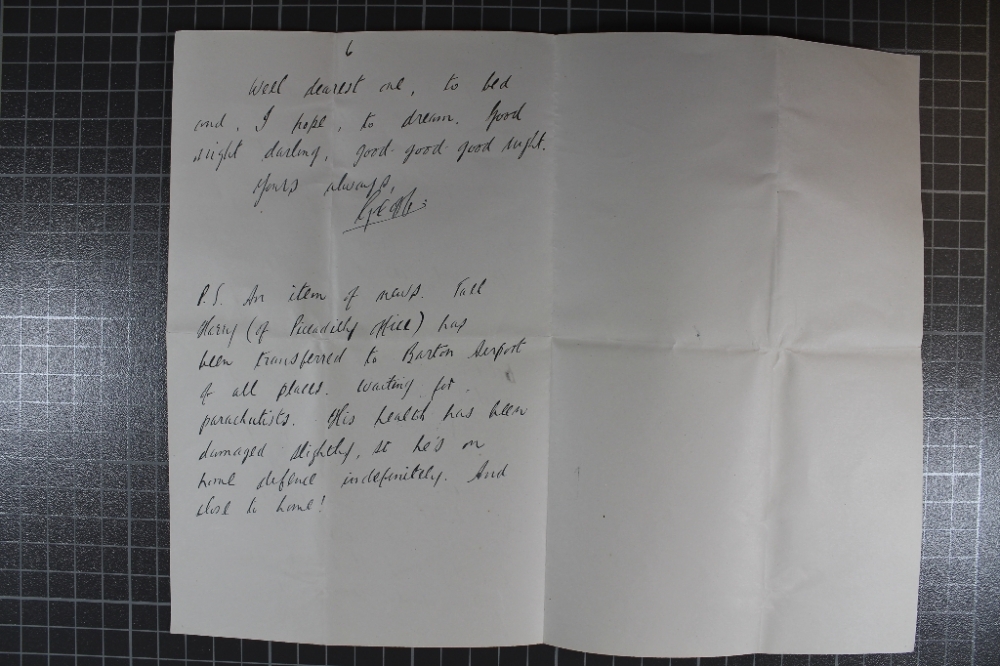 6
Well dearest one, to bed
and, I hope, to dream. Good
night darling, good-good-good night.
Yours always,
P.S. An item of news. Tall
Harry (of Piccadilly office) has
been transferred to Barton Airport
of all places. Waiting for
parachutists. His health has been
damaged slightly, so he's on
home defence indefinitely. And
close to home!